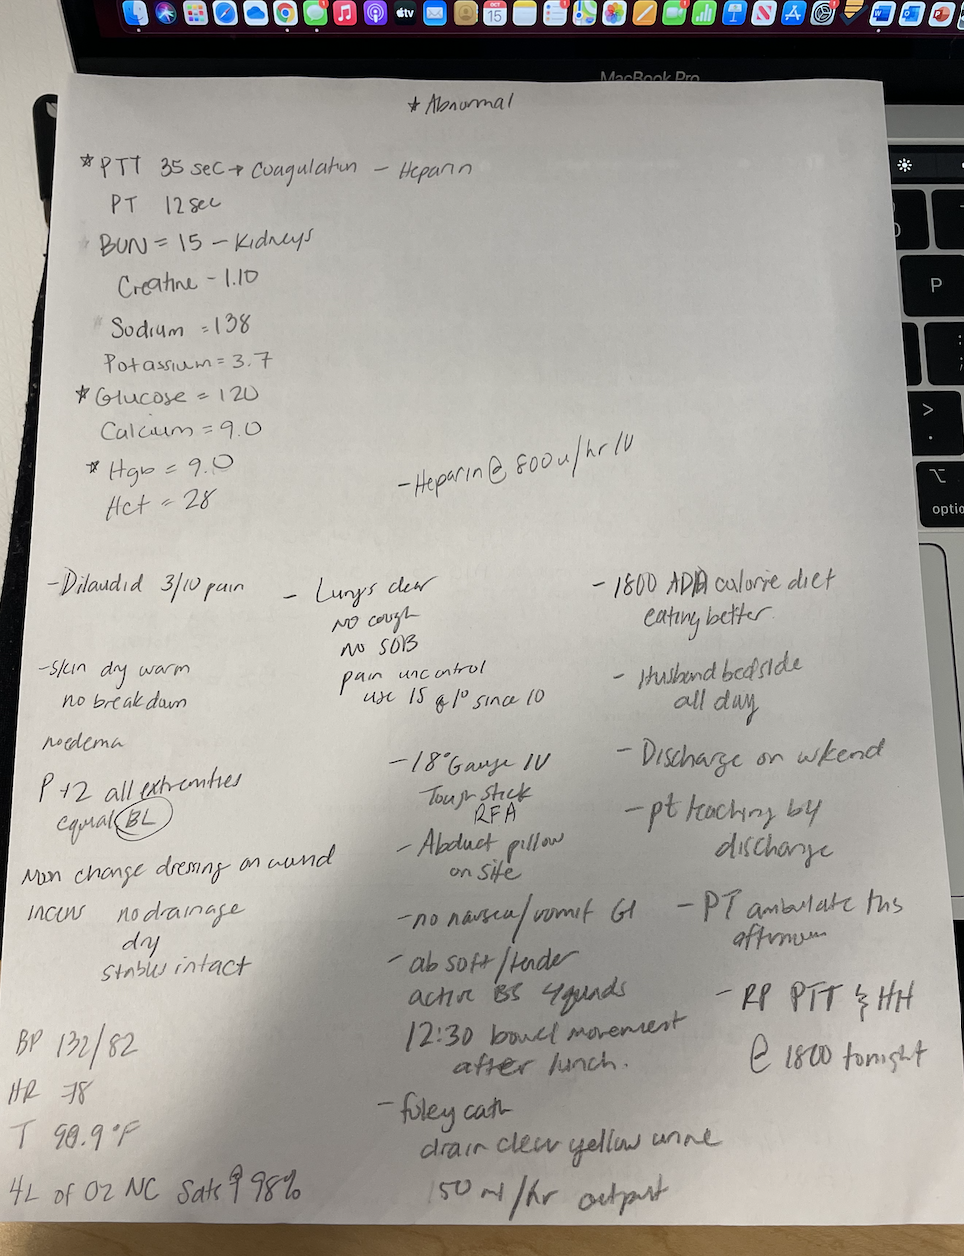 tv
OCT
15
MacBook Pro
P
>
.
⌥
optio
★ Abnormal
★ PTT 35 sec → Coagulatun - Heparin
PT 12 sec
BUN = 15 - Kidneys
Creatine - 1.10
Sodium = 138
Potassium = 3.7
★ Glucose = 120
Calcium = 9.0
★ Hgb = 9.0
Hct = 28
- Heparin @ 800 u/hr IV
- Dilaudid 3/10 pain
- Skin dry warm
no breakdown
no edema
P +2 all extremities
equal BL
change dressing on wound
no drainage
dry
intact
BP 132/82
HR 78
T 98.9 °F
4L of O2 NC Sats @ 98%
- Lungs clear
NO cough
no SOB
pain uncontrol
use 15 since 10
- 18° Gauge IV
Tough Stick
RFA
- Abduct pillow
on site
- no nausea/vomit GI
- ab soft/tender
active BS 4quads
12:30 bowel movement
after lunch.
- foley cath
drain clear yellow urine
150 ml/hr output
- 1800 ADA calorie diet
eating better.
- Husband bedside
all day
- Discharge on wkend
- pt teaching by
discharge
- PT ambulate this
afternoon
- RP PTT & HH
@ 1800 tonight